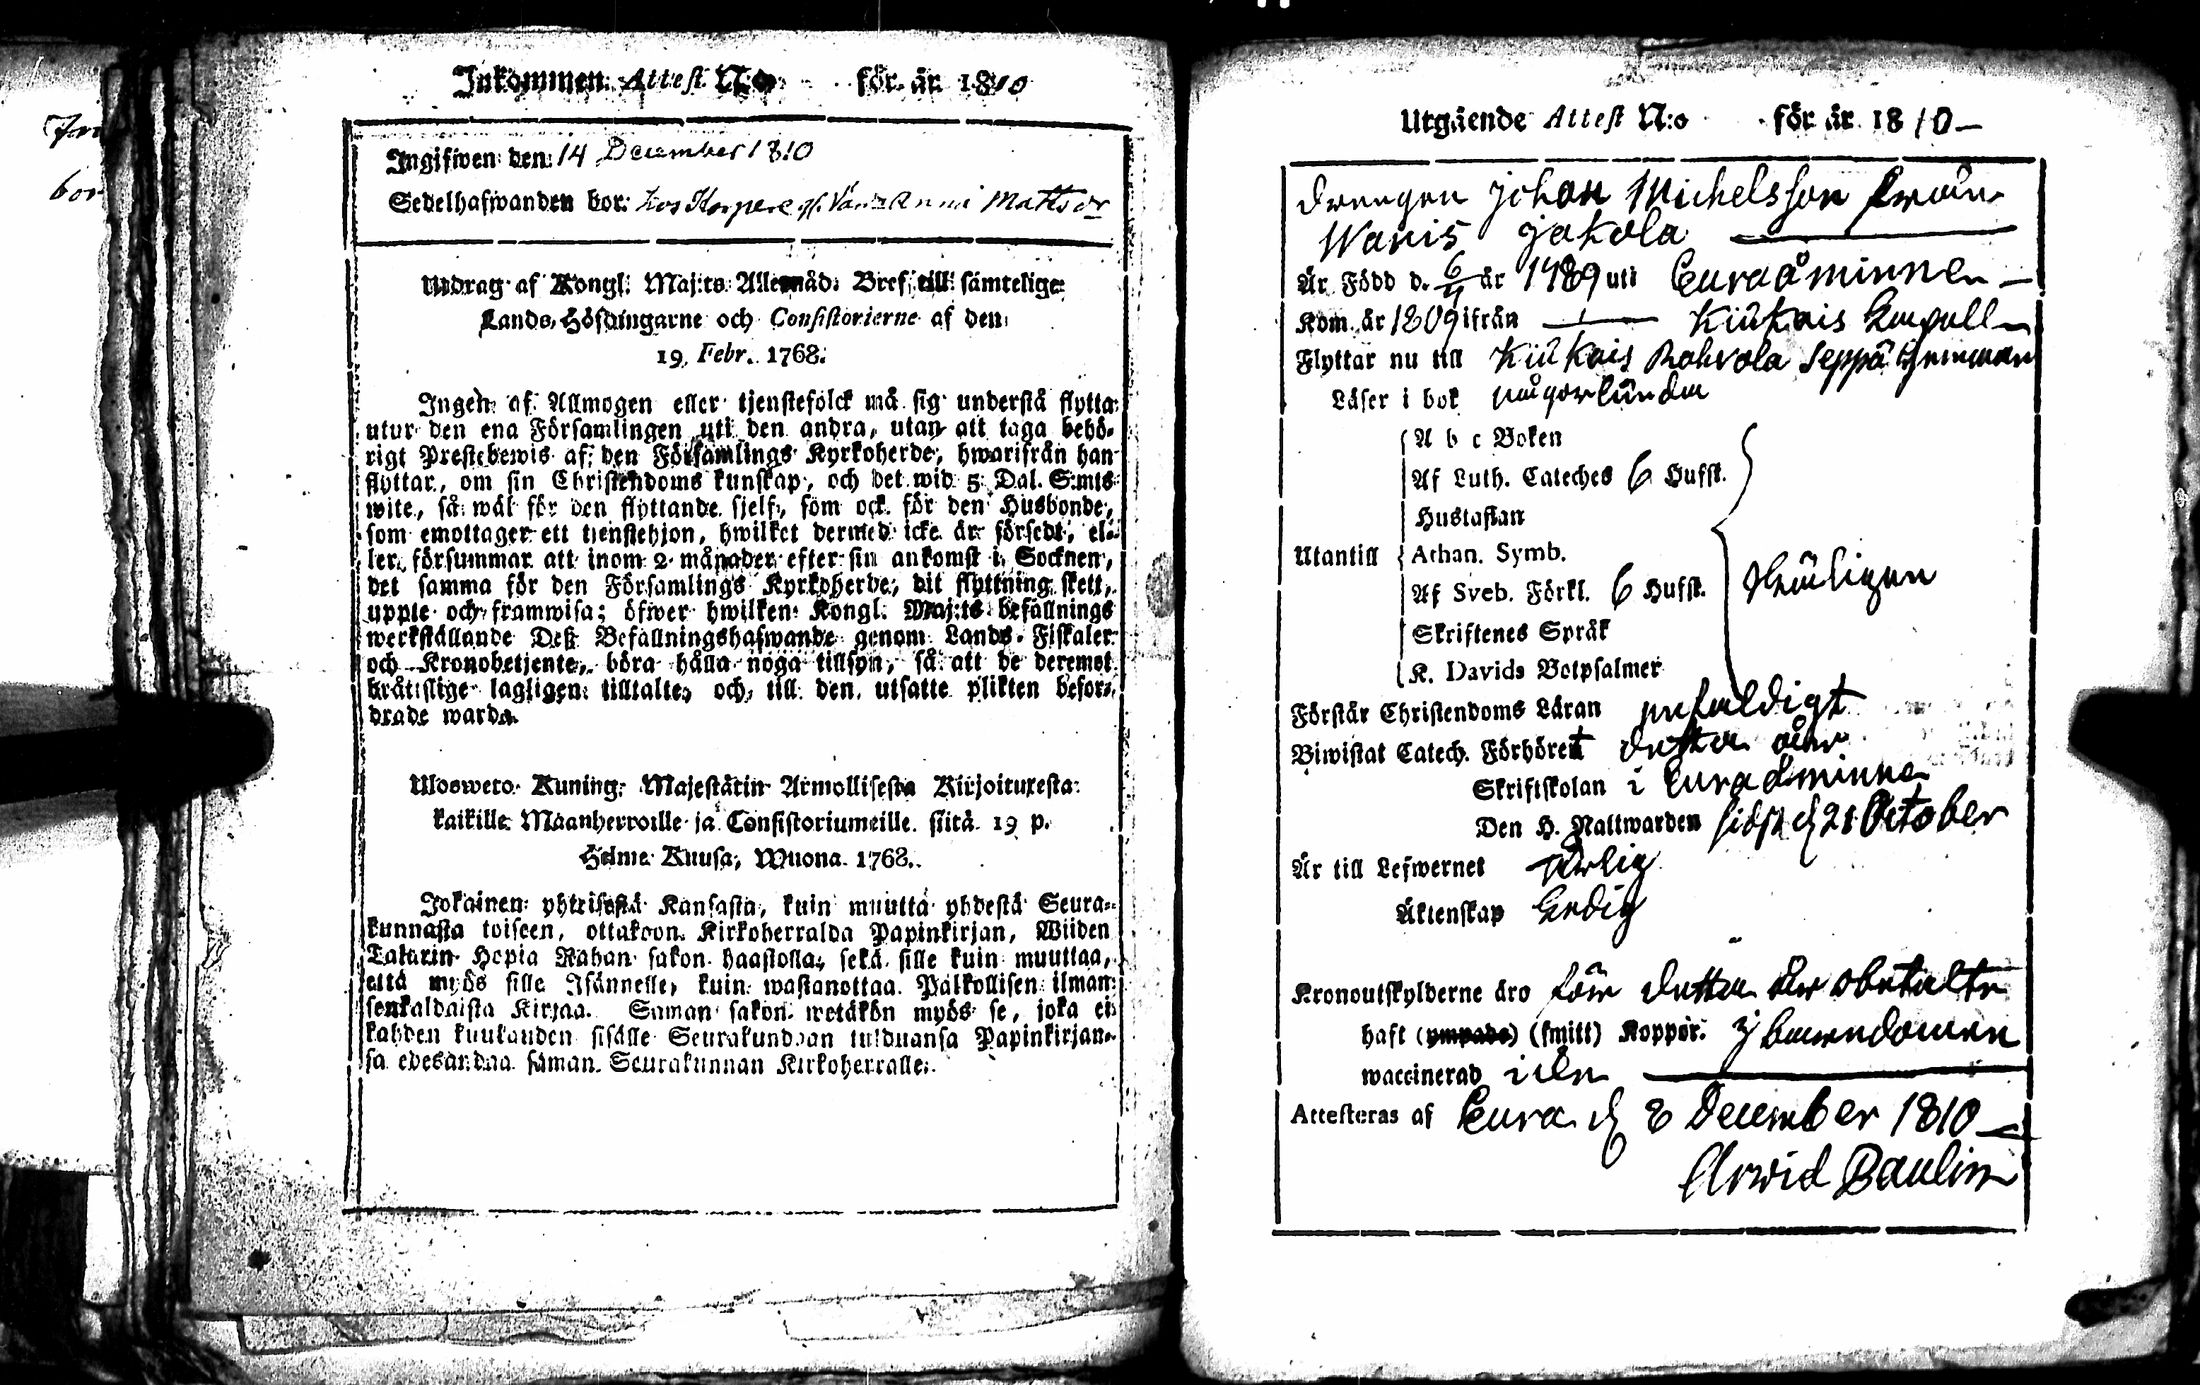 Inkommen Attest N:o för år 1810
Ingifwen den 14 December 1810
Sedelhafwanden bor: hos Anna Mattsdr
Utdrag af Kongl. Maj:ts Allernåd: Bref till samtelige
Lands-Höfdingarne och Consistorierne af den
19 Febr. 1768.
Ingen af Allmogen eller tjenstefolck må sig understå flytta
utur den ena Församlingen uti den andra, utan att taga behö-
rigt Prestebewis af den Församlings Kyrkoherde, hwarifrån han
flyttar, om sin Christendoms kunskap, och det wid 5 Dal. S:mts
wite, så wäl för den flyttande sjelf, som ock för den Husbonde,
som emottager ett tjenstehjon, hwilket dermed icke är försedt, el-
ler försummar att inom 2 månader efter sin ankomst i Socknen,
det samma för den Församlings Kyrkoherde, dit flyttning skett,
uppte och framwisa; öfwer hwilken Kongl. Maj:ts befallnings
werkställande Deß Befallningshafwande genom Lands-Fiskaler
och Kronobetjente, böra hålla noga tillsyn, så att de deremot
bråttslige lagligen tilltaltes och till den utsatte plikten befor-
drade warda.
Ulosweto Kuning. Majestätin Armollisesta Kirjoituxesta
kaikille Maanherroille ja Consistoriumeille siitä 19 p.
Helme Kuusa, Wuona 1768.
Jokainen yhteisestä Kansasta, kuin muutta yhdestä Seura-
kunnasta toiseen, ottakoon Kirkoherralda Papinkirjan, Wiiden
Talarin Hopia Rahan sakon haastolla, sekä sille kuin muuttaa,
että myös sille Isännelle, kuin wastanottaa Palkollisen ilman
senkaldaista Kirjaa. Saman sakon wetäkön myös se, joka ei
kahden kuukauden sisälle Seurakundaan tulduansa Papinkirjan-
sa edesandaa saman Seurakunnan Kirkoherralle.
Utgående Attest N:o för år 1810
Drengen Johan Michelsson från
Wanis Jakola
Är Född d. 6/4 år 1789 uti Euraåminne
Kom år 1809 ifrån Kiukais Capell
Flyttar nu till Kiukais Rahvola Seppä hemman
Läser i bok någorlunda
A b c Boken
Af Luth. Cateches 6 Hufst.
Hustaflan
Utantill Athan. Symb.
Af Sveb. Förkl. 6 Hufst. skäligen
Skriftenes Språk
K. Davids Botpsalmer
Förstår Christendoms Läran enfaldigt
Biwistat Catech. Förhöret detta år
Skriftskolan i Euraåminne
Den H. Nattwarden sidst d 21 October
Är till Lefwernet ärlig
Äktenskap Ledig
Kronoutskylderne äro för detta år obetalte
haft (ympade) (smitt) Koppor. i barndomen
waccinerad
Attesteras af Eura d 8 December 1810
Arwid Paulin